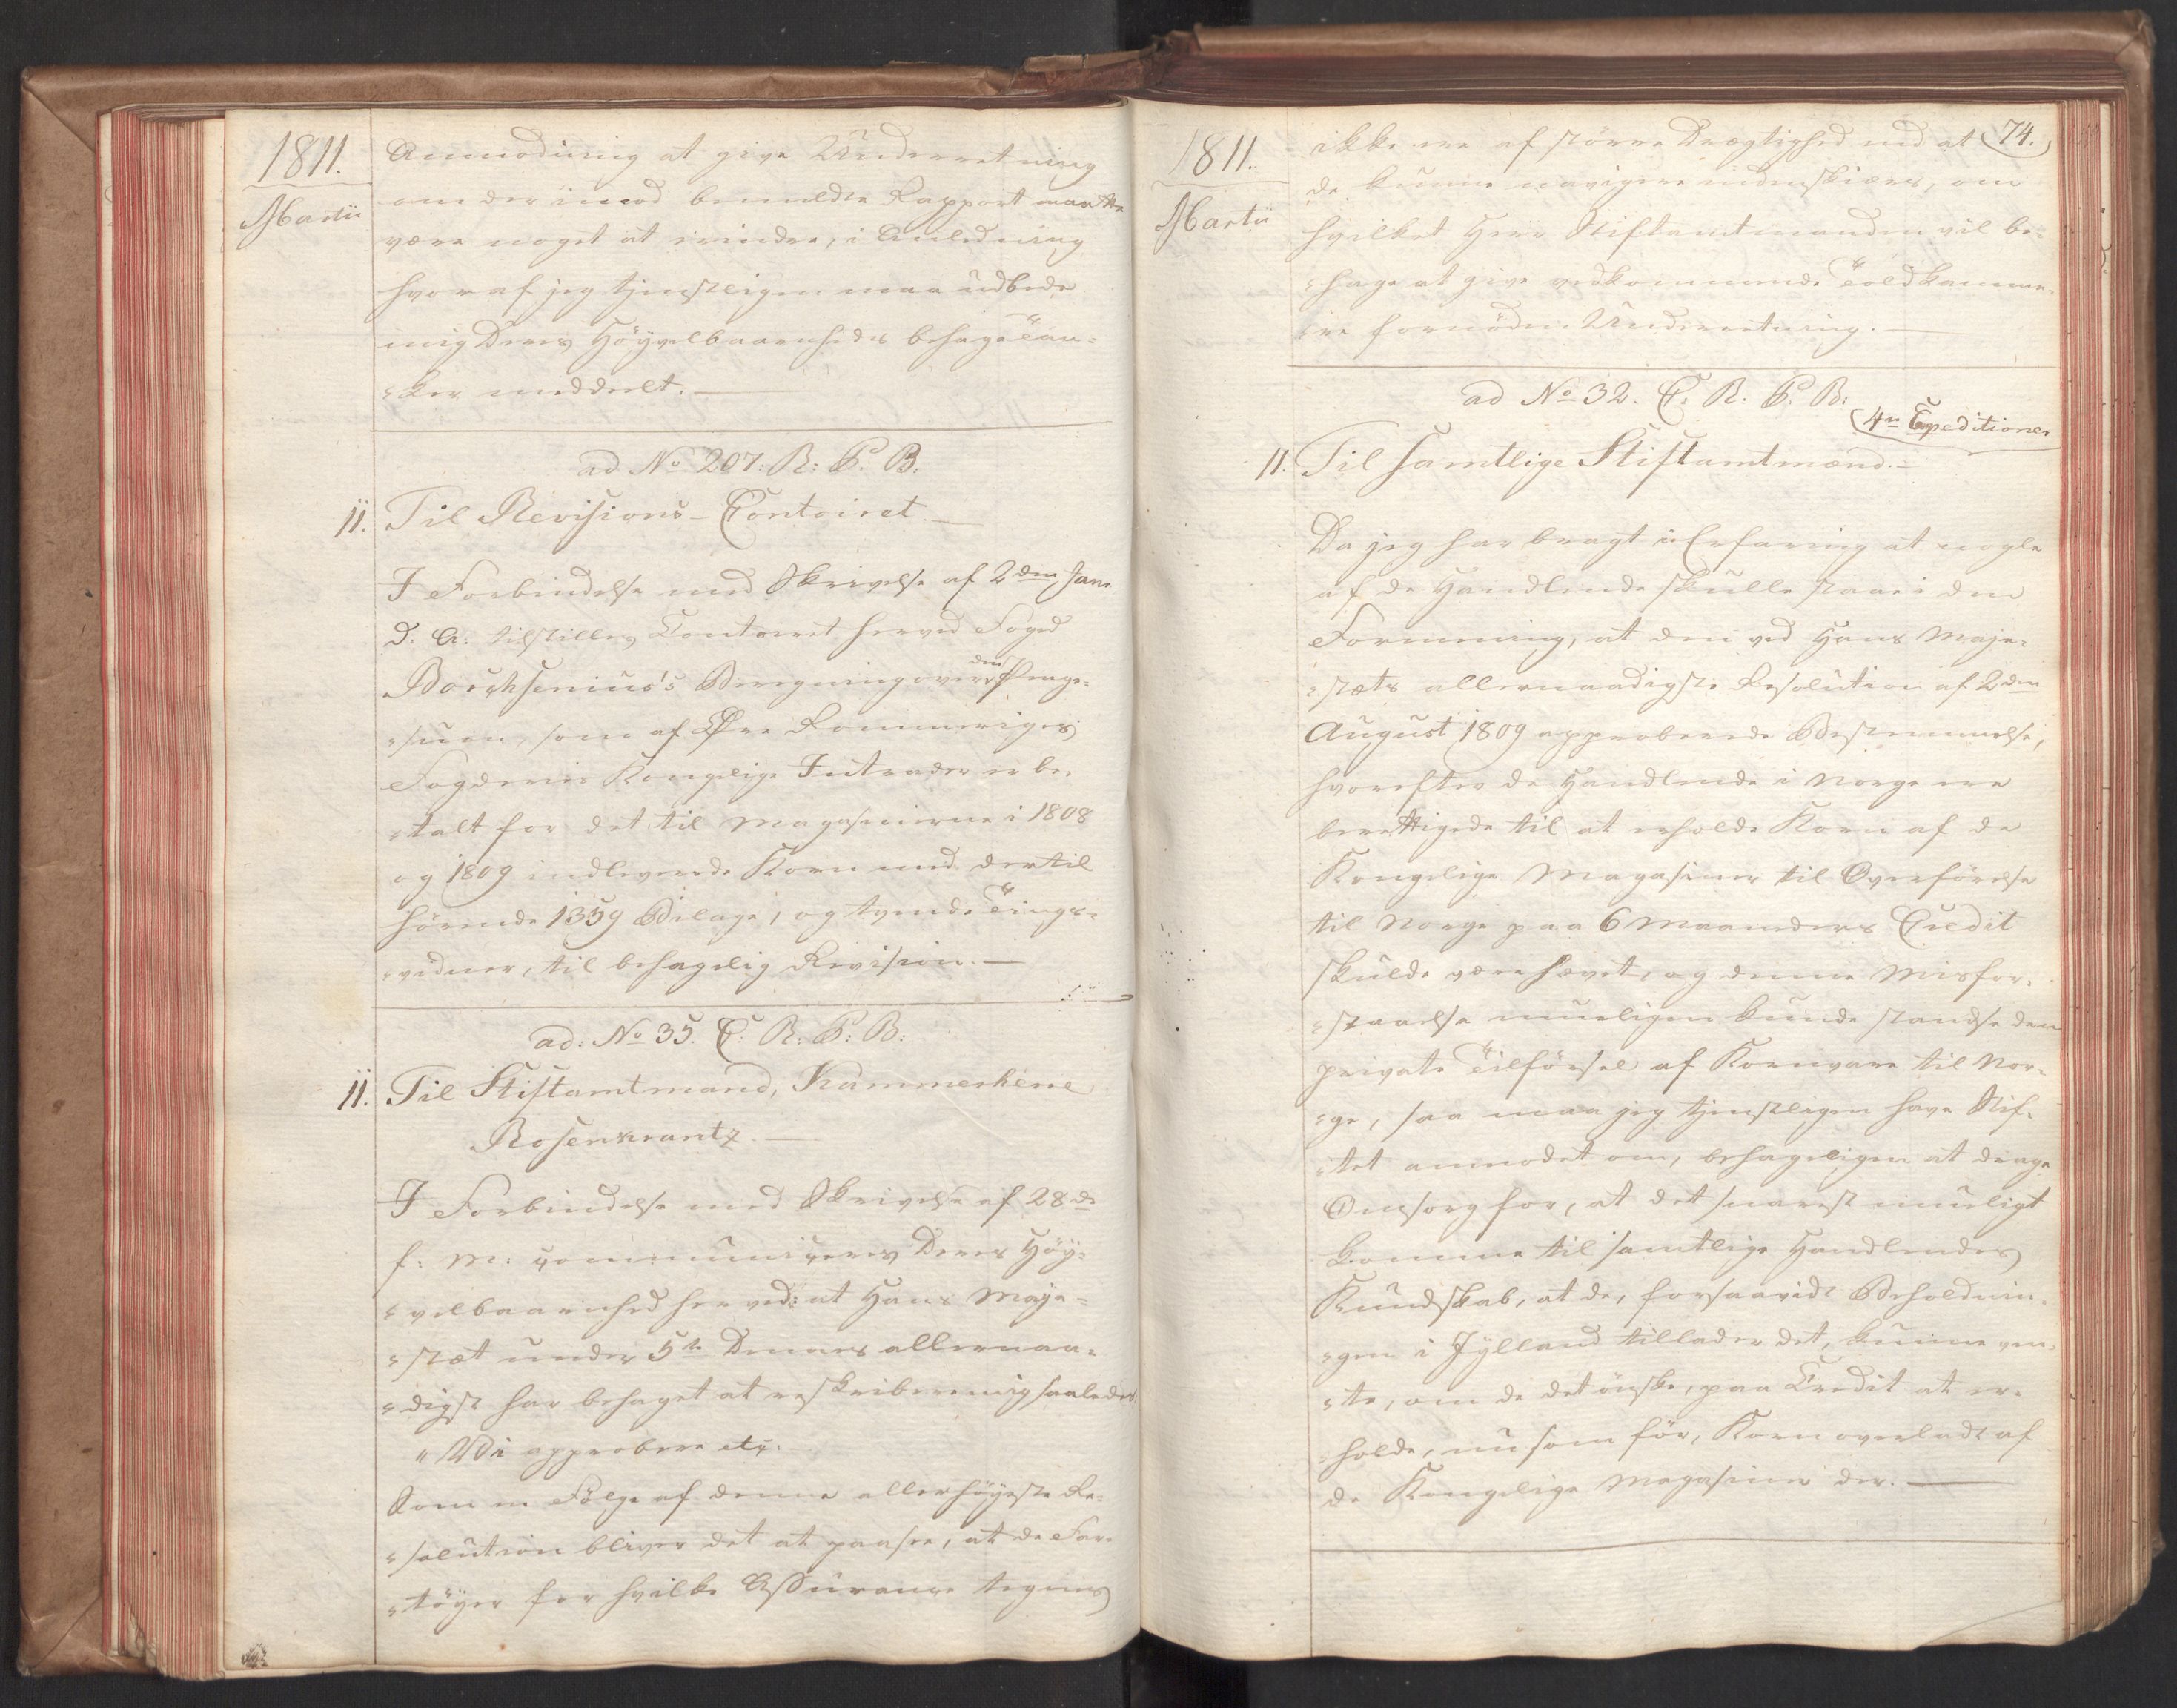 1811.
Martii
Anmodning at give Underretning
om der imod bemeldte Rapport maatte
være noget at erindre, i Anledning
hvoraf jeg tjenstligen maa udbede
mig Deres Höyvelbaarenheds behage Tan-
-ker meddeelt.
ad No 207: R: P. B.
11. Til Revisions-Contoiret.
I Forbindelse med Skrivelse af 2den Jan.
D. A: tilstilles Contoiret herved Foged
Borchsenius's Beregning over den Penge-
-sum, som af Øvre Rommeriges
Fogderies Kongelige Intrader er be-
-talt for det til Magasinerne i 1808
og 1809 indleverede Korn med dertil
hörende 1359 Bilage, og tvende Tings-
-vidner, til behagelig Revision.
ad: No 35. C: R: P: B:
11. Til Stiftamtmand, Kammerherre
Rosenkrantz.
I Forbindelse med Skrivelse af 28de
f: M: communiceres Deres Höy-
-velbaarenhed herved: at Hans Maje-
-stæt under 5te Dennes allernaa-
-digst har behaget at reskribere mig saaledes
"Vi approbere etc.
Som en Fölge af denne allerhöyeste Re-
-solution bliver det at paasee, at de Far-
-töyer for hvilke Assurance tegnes
1811.
Martii
74.
ikke ere af större Drægtighed end at
de kunne navigere indenskiærs, om
hvilket Herr Stiftamtmanden vil be-
-hage at give vedkommende Toldkamme-
-re fornöden Underretning.
ad No 32. C. R: P. B:
4re Expeditioner
11. Til samtlige Stiftamtmænd.
Da jeg har bragt i Erfaring at nogle
af de Handlende skulle staae i den
Formening, at den ved Hans Maje-
-stæts allernaadigste Resolution af 2den
August 1809 approberede Bestemmelse,
hvorefter de Handlende i Norge ere
berettigede til at erholde Korn af de
Kongelige Magasiner til Overförelse
til Norge paa 6 Maaneders Credit
skulde være hævet, og denne Misfor-
-staaelse mueligen kunde standse den
private Tilförsel af Kornvare til Nor-
-ge, saa maa jeg tjenstligen have Stif-
-tet anmodet om, behageligen at drage
Omsorg for, at det snarest mueligt
komme til samtlige Handlendes
Kundskab, at de, forsaavidt Beholdnin-
-gen i Jylland tillader det, kunne ven-
-te, om de det önske, paa Credit at er-
-holde, nu som för, Korn overladt af
de Kongelige Magasiner der.